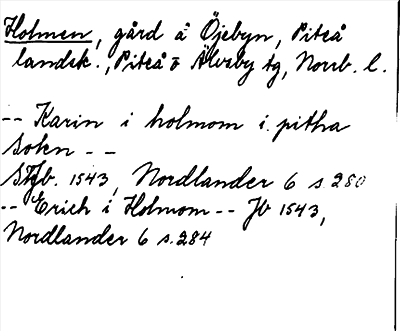 Holmen, gård å Öjebyn, Piteå
landsk., Piteå o Älvsby tg, Norrb. l.
-- Karin i holmom i pitha
soken - -
Stjb. 1543, Nordlander 6 s. 280
-- Erich i Holmom -- Jb 1543,
Nordlander 6 s. 284